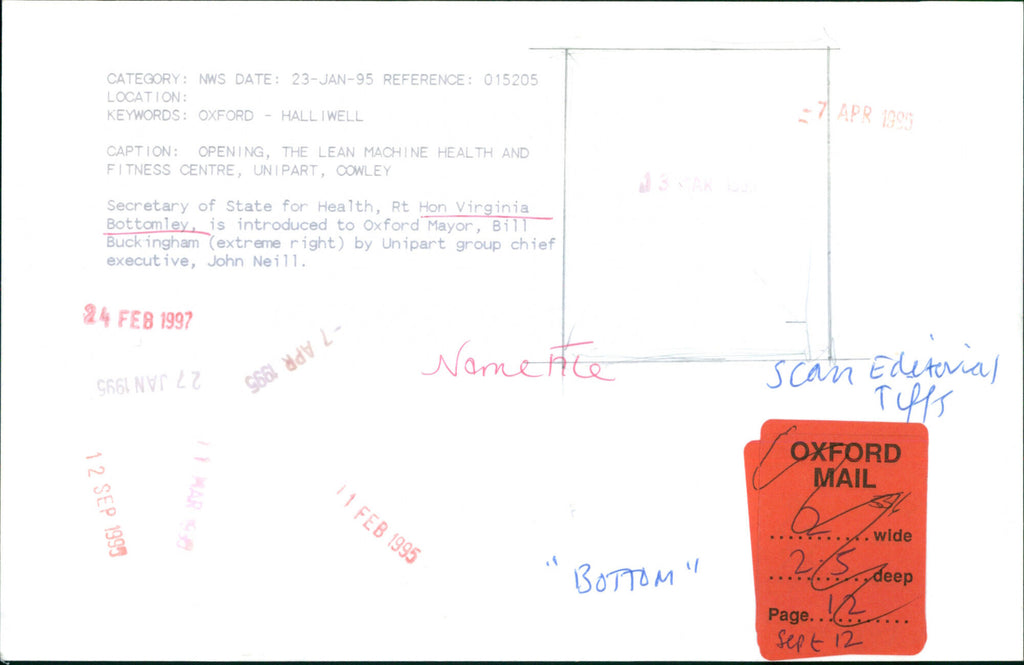 CATEGORY: NWS DATE: 23-JAN-95 REFERENCE: 015205
LOCATION:
KEYWORDS: OXFORD - HALLIWELL
CAPTION: OPENING, THE LEAN MACHINE HEALTH AND
FITNESS CENTRE, UNIPART, COWLEY
Secretary of State for Health, Rt Hon Virginia
Bottomley, is introduced to Oxford Mayor, Bill
Buckingham (extreme right) by Unipart group chief
executive, John Neill.
-7 APR 1995
MAR
24 FEB 1997
-7 APR 1995
27 JAN 1995
Name File
Scan Editorial
Tiffs
12 SEP 1995
11 MAR
11 FEB 1995
"BOTTOM"
OXFORD
MAIL
6 wide
25 deep
Page 12
Sept 12